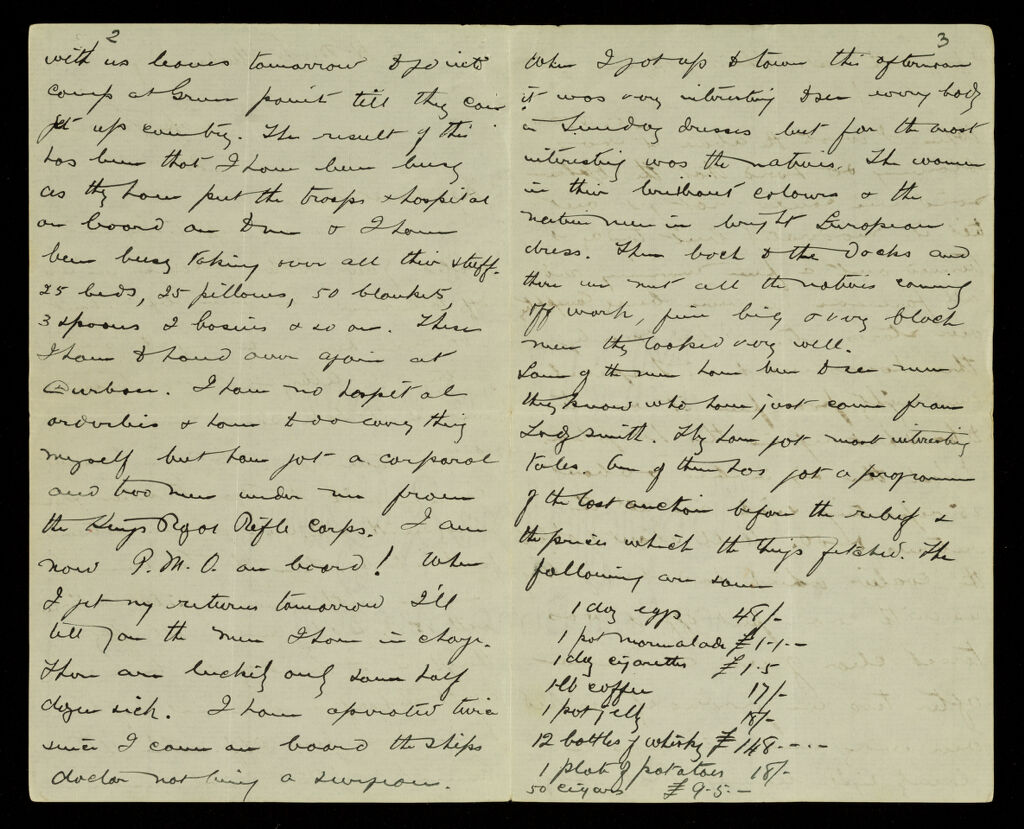 2
with us leaves tomorrow & go into
camp at Green point till they can
get up country. The result of this
has been that I have been busy
as they have put the troops & hospital
on board on & I have
been busy taking over all their stuff.
25 beds, 25 pillows, 50 blankets,
3 spoons 2 basins & so on. These
I have to hand over again at
Durban. I have no hospital
orderlies & have to do everything
myself but have got a corporal
and two men under me from
the Kings Royal Rifle Corps. I am
now P.M.O. on board! When
I get my returns tomorrow I'll
tell you the men I have in charge.
There are luckily only some half
dozen sick. I have operated twice
since I came on board the ships
doctor not being a surgeon.
3
When I got up to town this afternoon
it was very interesting to see everybody
in Sunday dresses but far the most
interesting was the natives. The women
in their brilliant colours & the
native men in bright European
dress. Then back to the Docks and
there we met all the natives coming
off work, fine big & very black
men they looked very well.
Some of the men have been to see men
they know who have just come from
Ladysmith. They have got most interesting
tales. One of them has got a programme
of the last auction before the relief &
the prices which the things fetched. The
following are some
1 doz eggs 48/-
1 pot marmalade £1-1-–
1 doz cigarettes £1-5
1 lb coffee 17/-
1 pot jelly 18/-
12 bottles of whisky £148-–-–
1 plate of potatoes 18/-
50 cigars £9-5-–